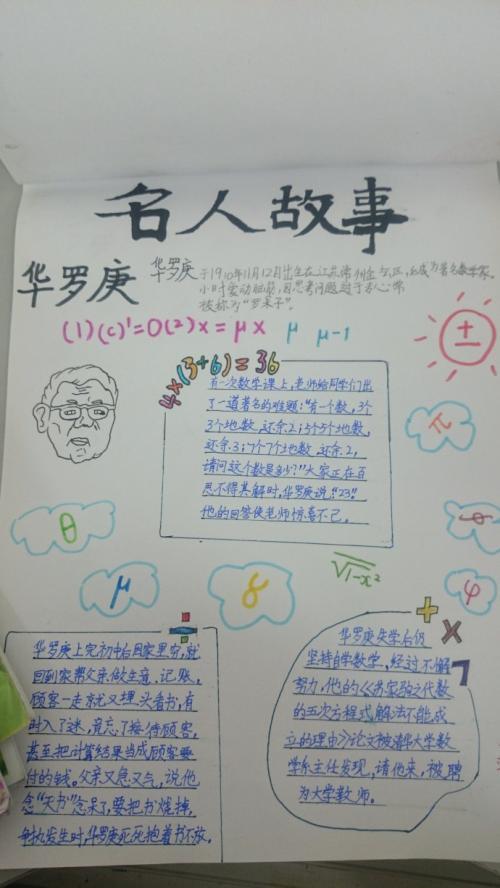 名人故事
华罗庚
华罗庚 于1910年11月12日出生在江苏常州金坛区,后成为著名数学家。
小时爱动脑筋,因思考问题过于专心常
被称为“罗呆子”。
(1)(c)'=0(2)x=μx μ μ-1
4×(3+6)=36
±
有一次数学课上,老师给同学们出
了一道著名的难题:“有一个数,3个
3个地数,还余2;5个5个地数,
还余3;7个7个地数,还余2,
请问这个数是多少?”大家正在百
思不得其解时,华罗庚说:“23!”
他的回答使老师惊喜不已。
π
θ
μ
8
√1-x²
φ
÷
+
×
华罗庚上完初中后因家里穷,就
回到家帮父亲做生意,记账,
顾客一走就又埋头看书,有
时入了迷,竟忘了接待顾客,
甚至把计算结果当成顾客要
付的钱。父亲又急又气,说他
念“天书”念呆了,要把书烧掉,
争执发生时,华罗庚死死抱着书不放。
华罗庚失学后仍
坚持自学数学,经过不懈
努力,他的《苏家驹之代数
的五次方程式解法不能成
立的理由》论文被清华大学数
学系主任发现,请他来,被聘
为大学教师。